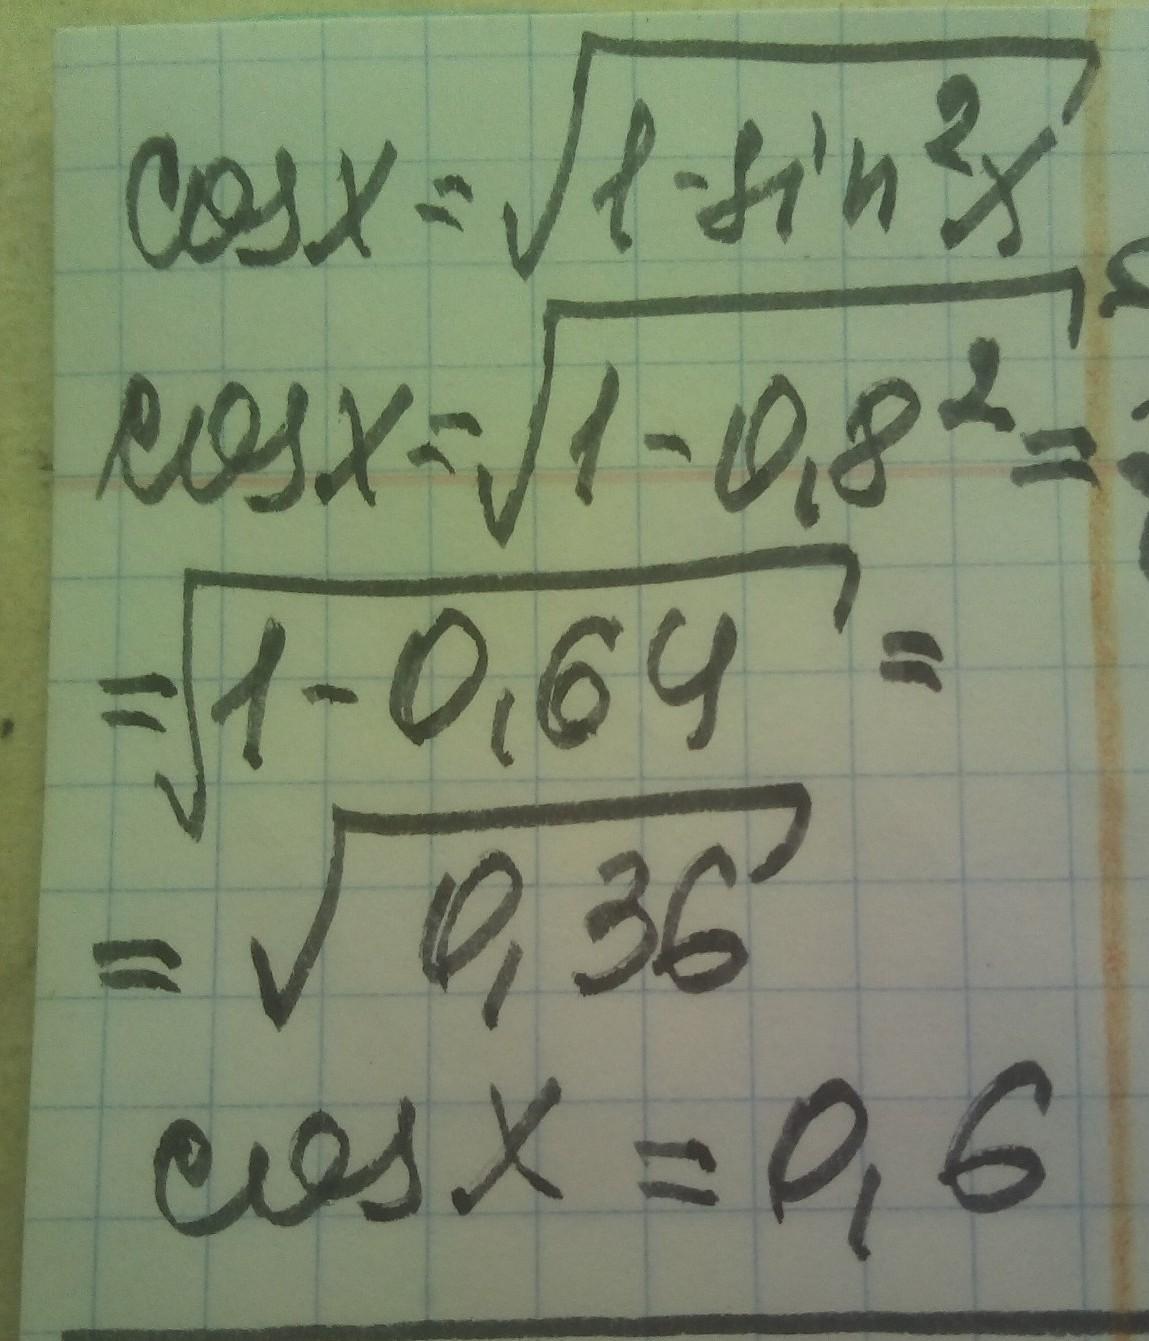 cosx=√1-sin²x
cosx=√1-0,8²=
=√1-0,64=
=√0,36
cosx=0,6